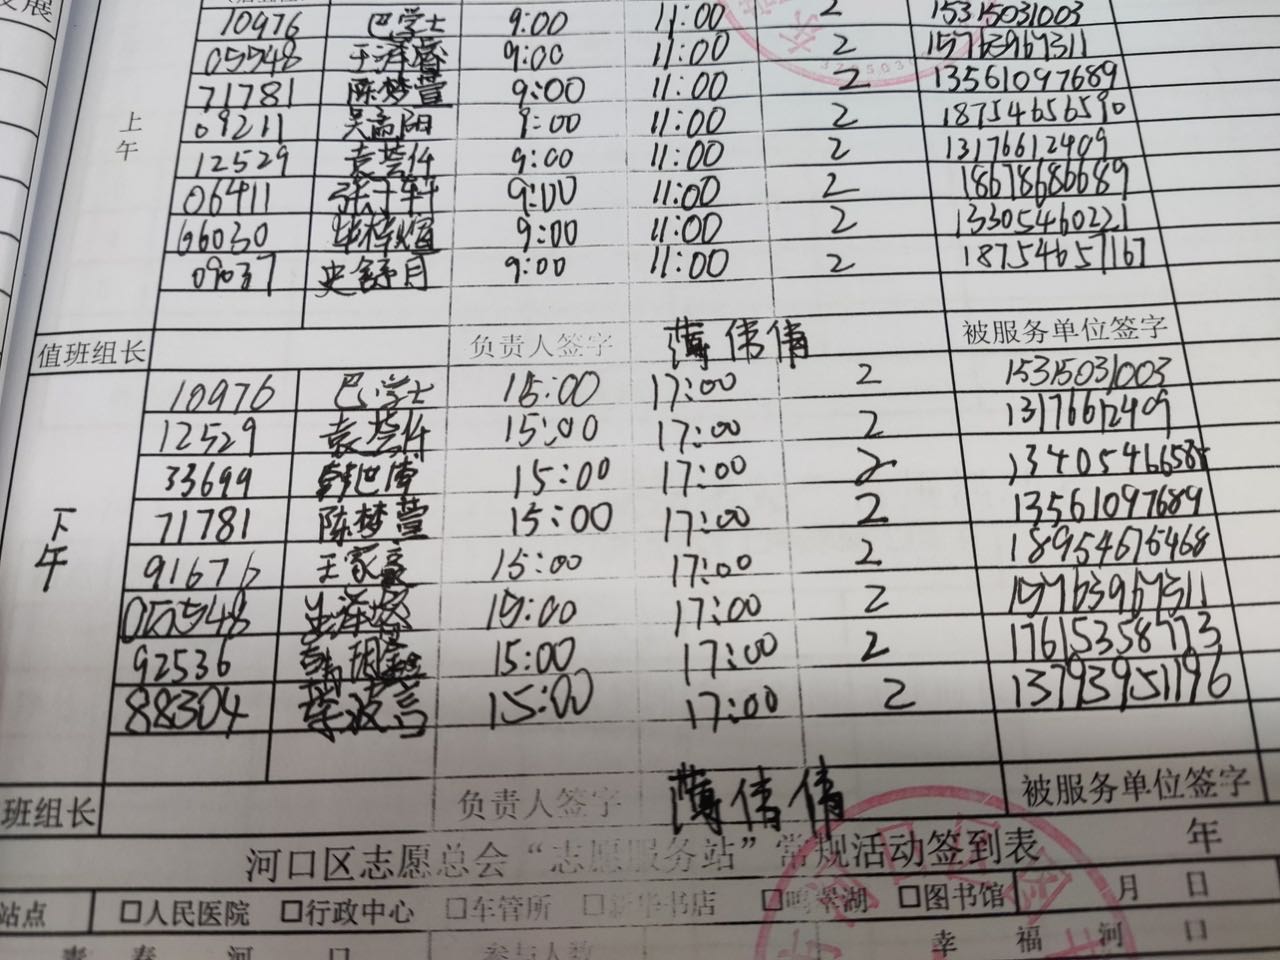 展
10976 巴学士 9:00 11:00 2 15315031003
05548 王泽睿 9:00 11:00 2 15763967311
71781 陈梦萱 9:00 11:00 2 13561097689
上午
09211 吴孟阳 9:00 11:00 2 18754656590
12529 袁艺仟 9:00 11:00 2 13176612409
06411 张子轩 9:00 11:00 2 18678686689
66030 9:00 11:00 2 13305460221
09037 史舒月 9:00 11:00 2 18754657167
值班组长 负责人签字 薄伟倩 被服务单位签字
10976 巴学士 15:00 17:00 2 15315031003
12529 袁艺仟 15:00 17:00 2 13176612409
33699 韩世博 15:00 17:00 2 1340546658
下午
71781 陈梦萱 15:00 17:00 2 13561097689
91676 王家 15:00 17:00 2 18954676468
05548 15:00 17:00 2 15763967311
92536 15:00 17:00 2 17615358773
88304 15:00 17:00 2 13793951196
班组长 负责人签字 薄倩倩 被服务单位签字
河口区志愿总会“志愿服务站”常规活动签到表 年
站点 □人民医院 □行政中心 □车管所 □新华书店 □鸣翠湖 □图书馆 月 日
青春河口 参与人数 幸福河口